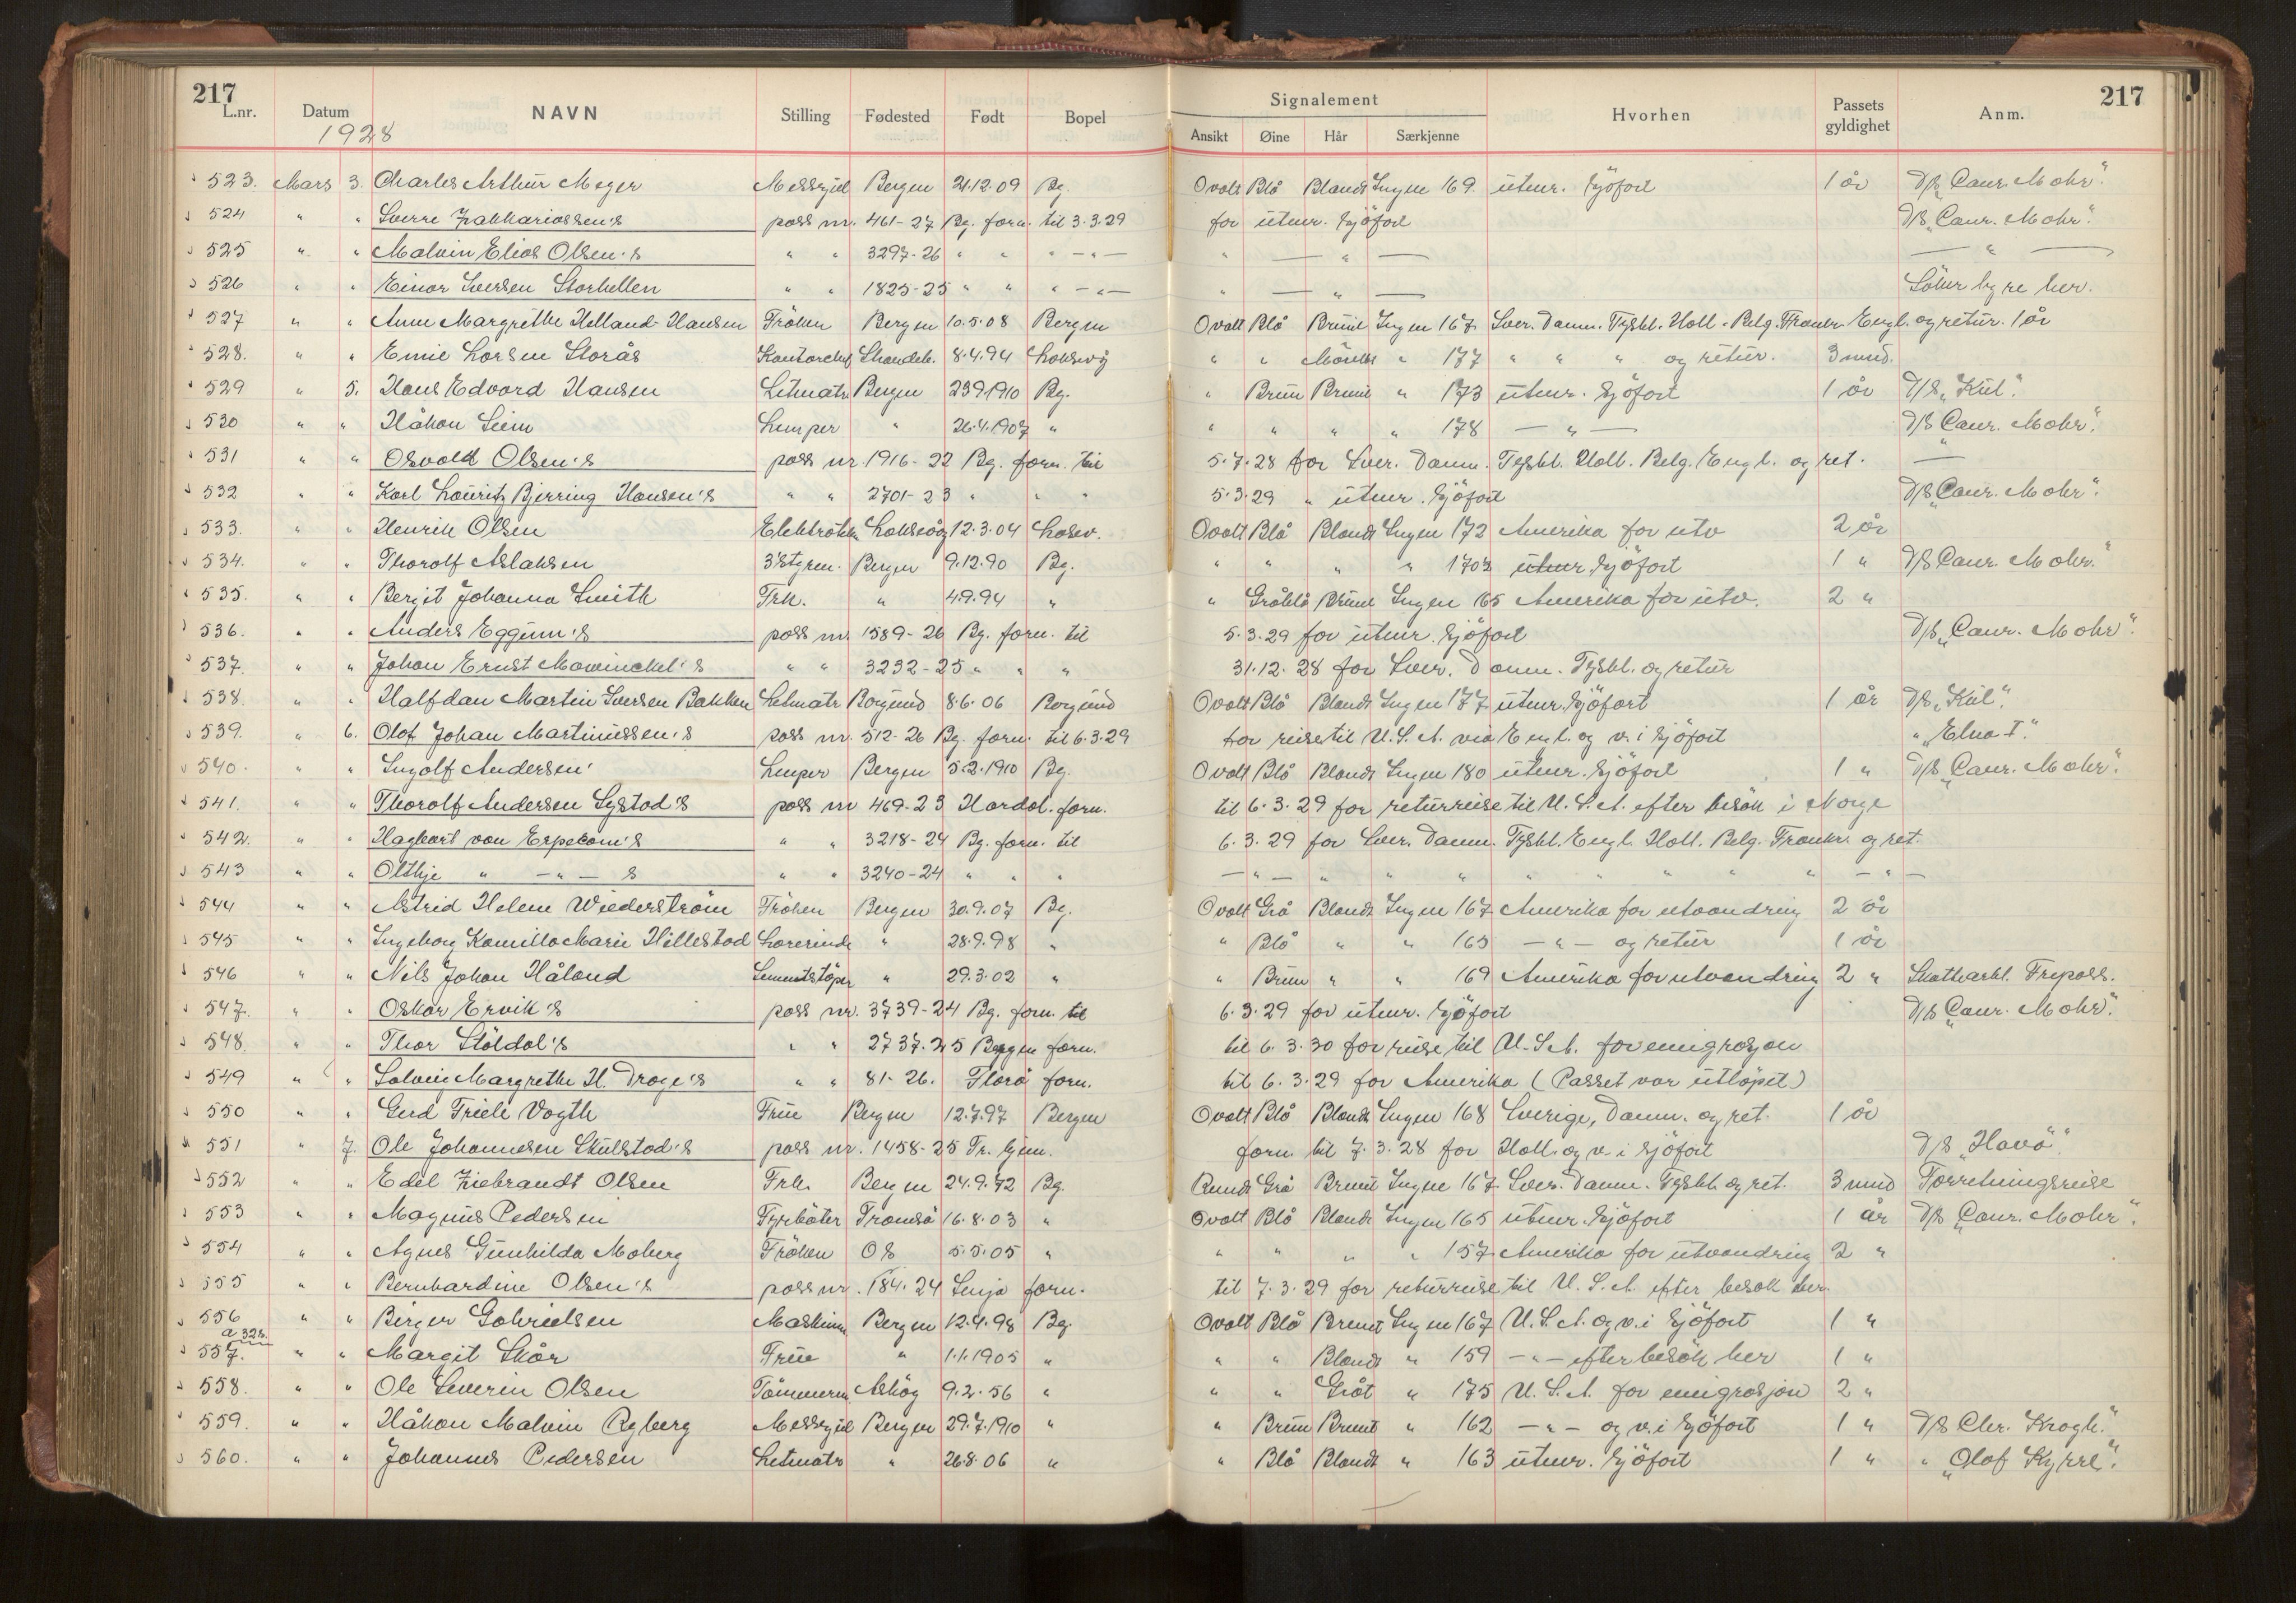 217
L.nr. Datum NAVN Stilling Fødested Født Bopel
1928
Signalement Hvorhen Passets gyldighet Anm. 217
Ansikt Øine Hår Særkjenne
523. Mars 3. Charles Arthur Meyer Messegut Bergen 21.12.09 Bg. Ovalt Blå Blondt Ingen 169. utenr. Sjöfart 1 år D/S "Caur. Mohr".
524 " " Sverre Zakkariassen's pass nr. 461-27 Bg. forn. til 3.3.29 for utenr. Sjöfart D/S "Caur. Mohr".
525 " " Malvin Elias Olsen's " " 3297-26 " " " — " — " — " — — " —
526 " " Einar Iversen Storhellen " " 1825-25 " " " — " — " — " — Söker hyre her.
527 " " Anne Margrethe Helland-Hansen Fröken Bergen 10.5.08 Bergen Ovalt Blå Brunt Ingen 167 Sver. Danm. Tyskl. Holl. Belg. Frankr. Engl. og retur. 1 år
528. " " Emil Larsen Storås Kontorchef 8.4.94 Laksevåg " " Mörkt " 177 " " " og retur. 3 mnd.
529 " 5. Hans Edvard Hansen Letmatr. Bergen 23.9.1910 Bg. " Brun Brunt " 173 utenr. Sjöfart 1 år D/S "Kul".
530 " " Håkon Seim Lemper " 26.4.1907 " " " " " 178 — " — D/S "Caur. Mohr".
531 " " Osvald Olsen's pass nr. 1916-22 Bg. forn. til 5.7.28 for Sver. Danm. Tyskl. Holl. Belg. Engl. og ret. —
532 " " Karl Lauritz Bjerring Hansen's " " 2701-23 " " " 5.3.29 " utenr. Sjöfart D/S "Caur. Mohr".
533. " " Henrik Olsen Elektrotekn. Laksevåg 12.3.04 Laksv. Ovalt Blå Blondt Ingen 172 Amerika for utv 2 år
534. " " Thorolf Aslaksen 3'Styrm. Bergen 9.12.90 Bg. " " " " 170 utenr. Sjöfart 1 " D/S "Caur. Mohr."
535. " " Bergit Johanna Smith Frk. " 4.9.94 " " Gråblå Brunt Ingen 165 Amerika for utv. 2 "
536. " " Anders Eggum's pass nr. 1589-26 Bg. forn. til 5.3.29 for utenr. Sjöfart D/S "Caur. Mohr".
537. " " Johan Ernst Mowinckel's " " 3232-25 " " " 31.12.28 for Sver. Danm. Tyskl. og retur
538. " " Halfdan Martin Iversen Bakken Letmatr. Borgund 8.6.06 Borgund Ovalt Blå Blondt Ingen 177 utenr. Sjöfart 1 år D/S "Kul".
539. " 6. Olaf Johan Martinussen's pass nr. 512-26 Bg. forn. til 6.3.29 for reise til U.S.A. via Engl. og v. i Sjöfart " "Elna I".
540. " " Ingolf Andersen Lemper Bergen 5.2.1910 Bg. Ovalt Blå Blondt Ingen 180 utenr. Sjöfart 1 " D/S "Caur. Mohr".
541. " " Thorolf Andersen Systad's pass nr 469-23 Hordal. forn. til 6.3.29 for returreise til U.S.A. efter besök i Norge
542. " " Hagbart von Erpecom's " " 3218-24 Bg. forn. til 6.3.29 for Sver. Danm. Tyskl. Engl. Holl. Belg. Frankr. og ret.
543 " " Olthje " — " — s " " 3240-24 " " " — " — " " " " " " " " — " —
544 " " Astrid Helene Wiederström Fröken Bergen 30.9.07 Bg. Ovalt Grå Blondt Ingen 167 Amerika for utvandring 2 år
545 " " Ingeborg Kamilla Marie Hillestad Lærerinde " 28.9.98 " " Blå " " 165 — " — og retur 1 år
546 " " Nils Johan Håland Sementstöper " 29.3.02 " " Brun " " 169 Amerika for utvandring 2 " Skattearkt. Fripass.
547. " " Oskar Ervik's pass nr. 3739-24 Bg. forn. til 6.3.29 for utenr. Sjöfart D/S "Caur. Mohr".
548. " " Thor Stöldal's " " 2737.25 Bergen forn. til 6.3.30 for reise til U.S.A. for emigrasjon
549 " " Solveig Margrethe H. Drage's " " 81-26. Florö forn. til 6.3.29 for Amerika (Passet var utlöpet)
550 " " Gerd Friele Vogth Frue Bergen 12.7.97 Bergen Ovalt Blå Blondt Ingen 168 Sverige, Danm. og ret. 1 år
551 " 7. Ole Johannesen Skulstad's pass nr. 1458-25 Tr.hjem. forn. til 7.3.28 for Holl. og v. i Sjöfart D/S "Havö".
552 " " Edel Ziebrandt Olsen Frk. Bergen 24.9.72 Bg. Rundt Grå Brunt Ingen 167 Sver. Danm. Tyskl. og ret. 3 mnd Forretningsreise
553 " " Magnus Pedersen Fyrböter Tromsö 16.8.03 " Ovalt Blå Blondt Ingen 165 utenr. Sjöfart 1 år D/S "Caur. Mohr".
554 " " Agnes Gunhilda Moberg Fröken Os 5.5.05 " " " " " 157 Amerika for utvandring 2 "
555 " " Bernhardine Olsen's pass nr. 184.24 Senja forn. til 7.3.29 for returreise til U.S.A. efter besök her.
556 " " Birger Gabrielsen Maskinm. Bergen 12.4.98 Bg. Ovalt Blå Brunt Ingen 167 U.S.A. og v. i Sjöfart 1 "
a 328.
557. " " Margit Skår Frue " 1.1.1905 " " " Blondt " 159 — " — efter besök her 1 "
558. " " Ole Severin Olsen Tömmerm. Askög 9.2.56 " " " Gråt " 175 U.S.A. for emigrasjon 2 "
559. " " Håkon Malvin Ryberg Messegut Bergen 29.7.1910 " " Brun Brunt " 162 — " — og v. i Sjöfart 1 " D/S "Chr. Krogh".
560. " " Johannes Pedersen Letmatr. " 26.8.06 " " Blå Blondt " 163 utenr. Sjöfart 1 " " "Olaf Kyrre".